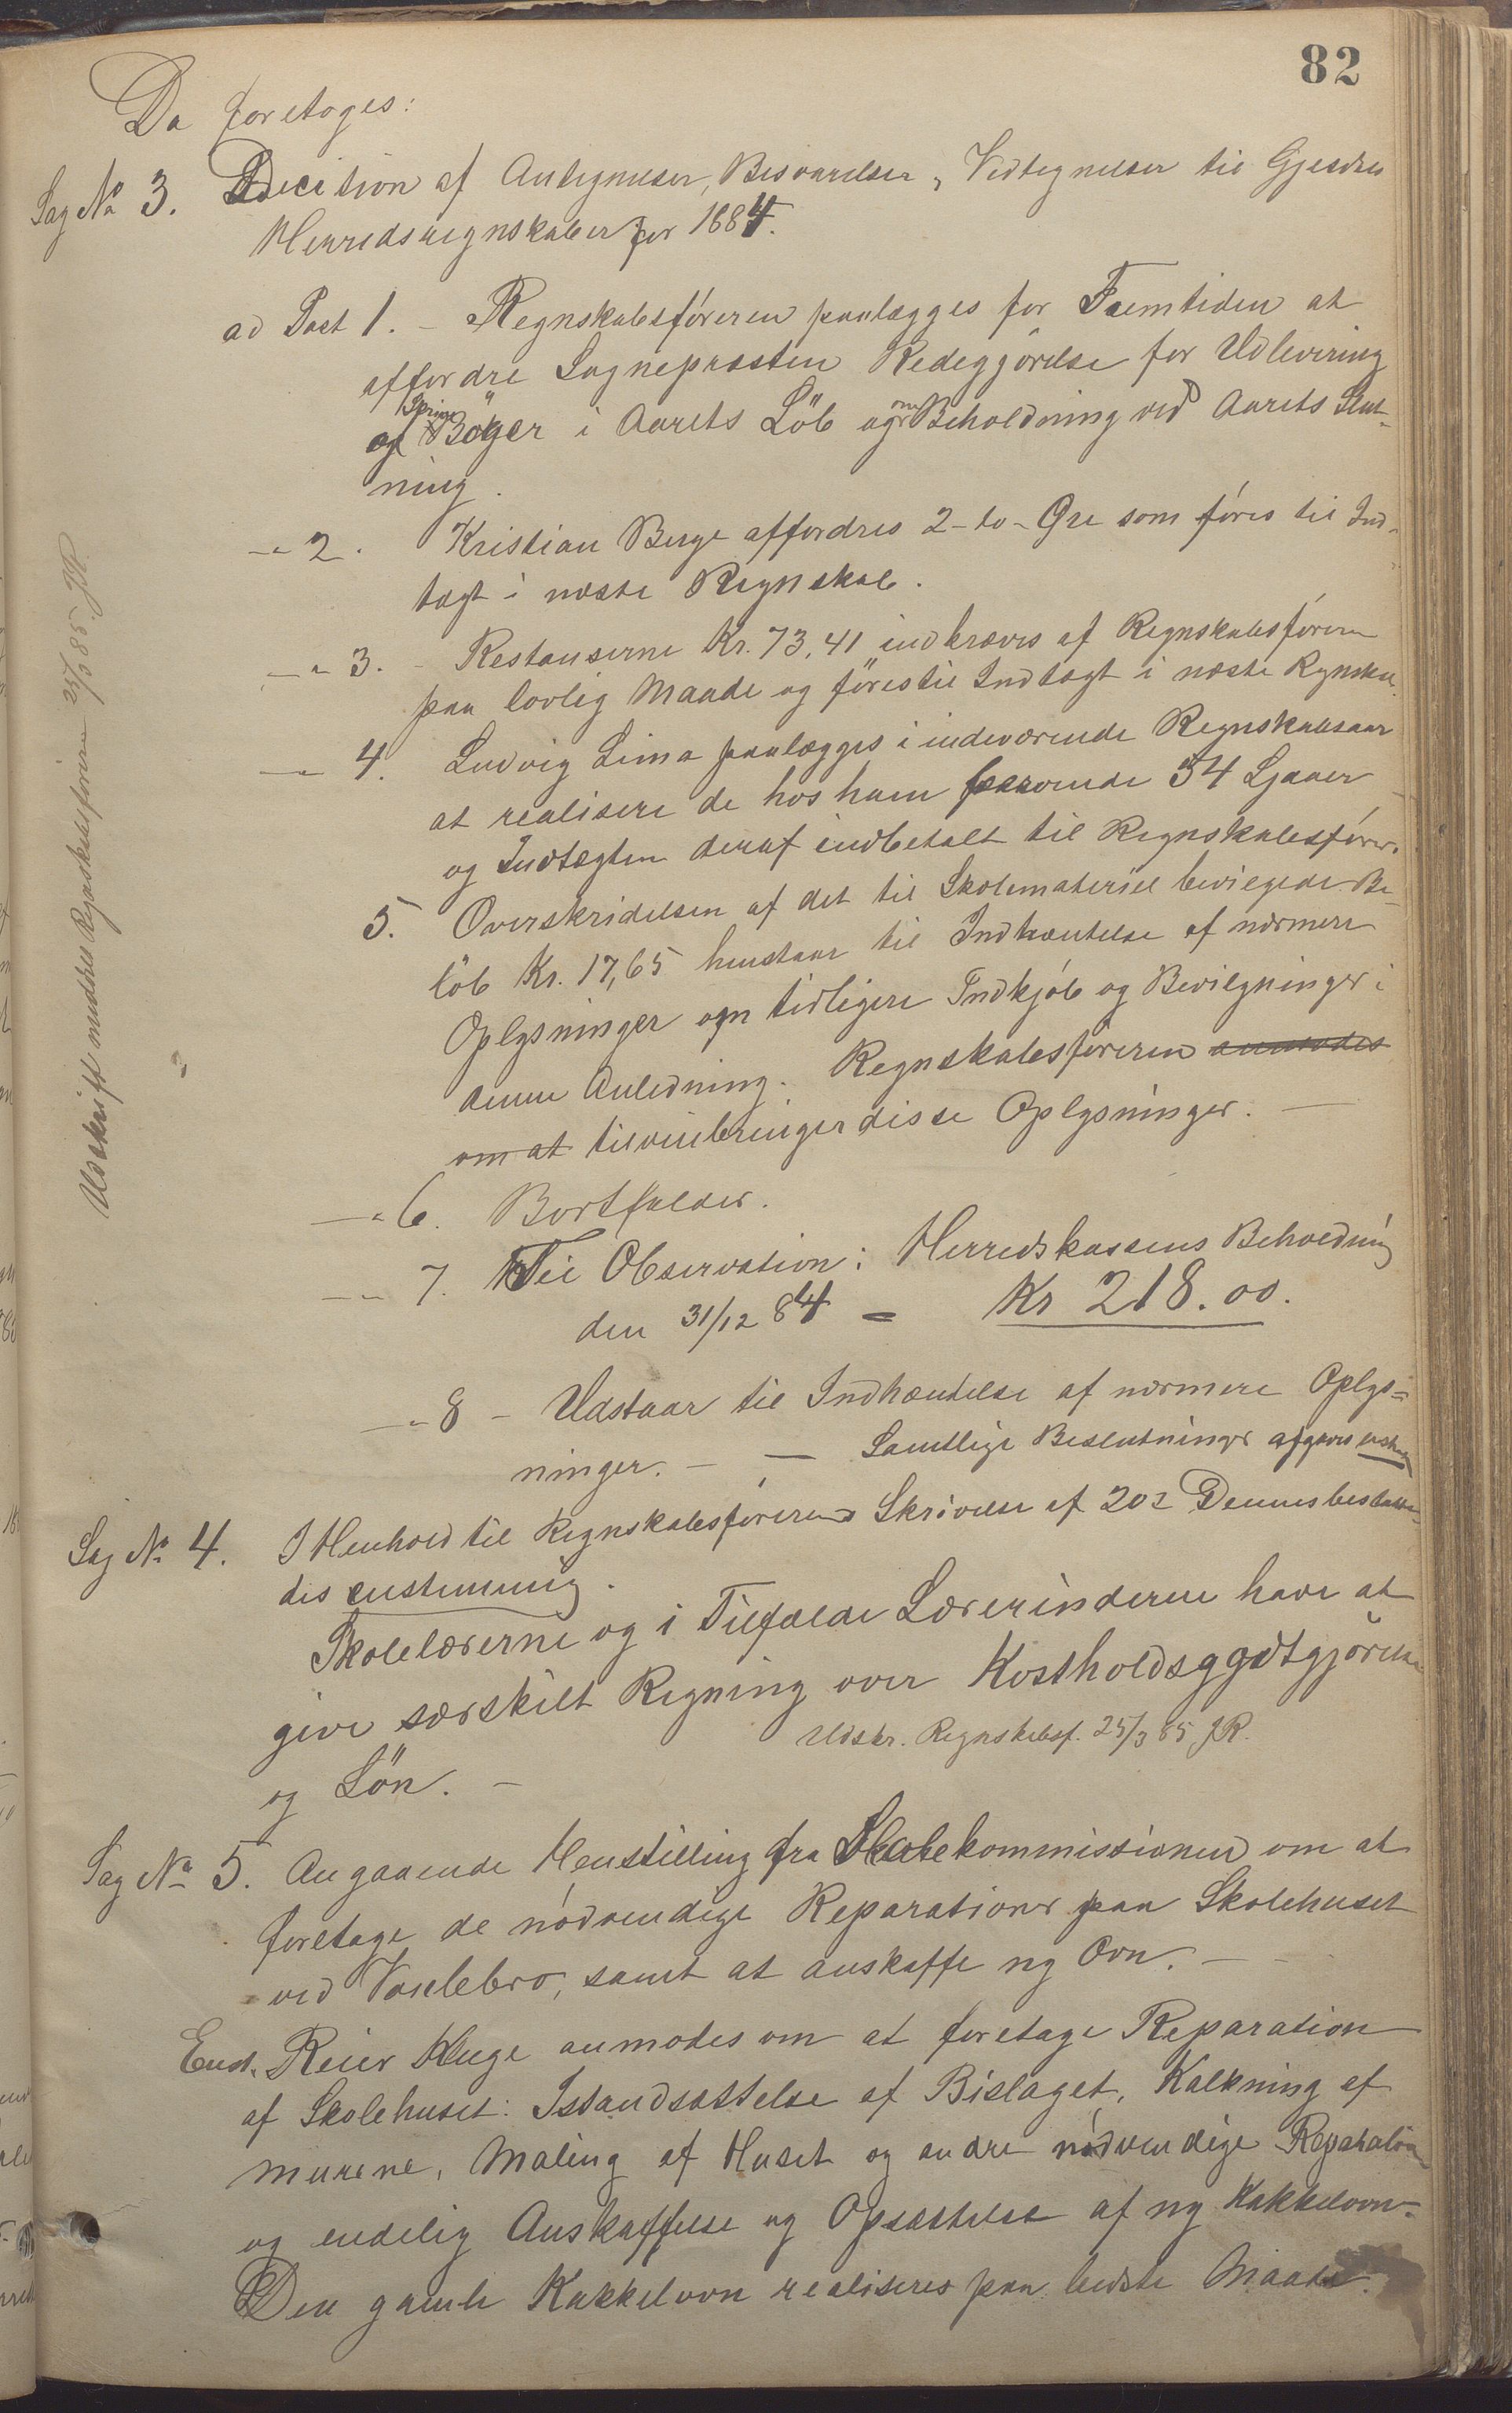 82
Da foretoges:
Sag No 3. Decision af Antegnelser, Besvarelser, Vedtegnelser til Gjesdal
Herredsregnskaber for 1884.
ad Post 1. – Regnskabsføreren paalægges for Fremtiden at
affordre Sognepræsten Redegjørelse for Udlevering
af Böger i Aarets Löb og om Beholdning ved Aarets Slut-
ning.
–"– 2. Kristian Berge affordres 2 – to – Øre som føres til Ind-
tægt i næste Regnskab.
–"– 3. – Restanserne Kr. 73,41 indkræves af Regnskabsføreren
paa lovlig Maade og föres til Indtægt i næste Regnskab.
–"– 4. Ludvig Lima paalægges i indeværende Regnskabsaar
at realisere de hos ham beroende 54 Ljaaer
og Indtægten deraf indbetalt til Regnskabsfører.
5. Overskridelsen af det til Skolemateriel bevilgede Be-
löb Kr. 17,65 henstaar til Indhæntelse af nærmere
Oplysninger om tidligere Indkjöb og Bevilgninger i
denne Anledning. Regnskabsføreren anmodes
om at tilveiebringer disse Oplysninger. –
–"– 6. Bortfalder.
–"– 7. Til Observation: Herredskassens Beholdning
den 31/12 84 = Kr 218.00.
–"– 8 – Udstaar til Indhæntelse af nærmere Oplys-
ninger. – – Samtlige Beslutninger afgaves enst.
Sag No 4. I Henhold til Regnskabsførerens Skrivelse af 20de Dennes beslutte-
des enstemmig.
Skolelærerne og i Tilfælde Lærerinderne have at
give særskilt Regning over Kostholdsgodtgjörelse
og Lön. –
Udskr. Regnskabsf. 25/3 85 JR.
Sag No 5. Angaaende Henstilling fra Skolekommissionen om at
foretage de nódvendige Reparationer paa Skolehuset
ved Vaulebro, samt at anskaffe ny Ovn. –
Enst. Reier Kluge anmodes om at foretage Reparation
af Skolehuset: Istandsættelse af Bislaget, Kalkning af
murene, Maling af Huset og andre nódvendige Reparation
og endelig Anskaffelse og Opsættelse af ny Kakkelovn. –
Den gamle Kakkelovn realiseres paa bedste Maade.
Udskrift meddelt Regnskabsføreren 25/3 85. JR